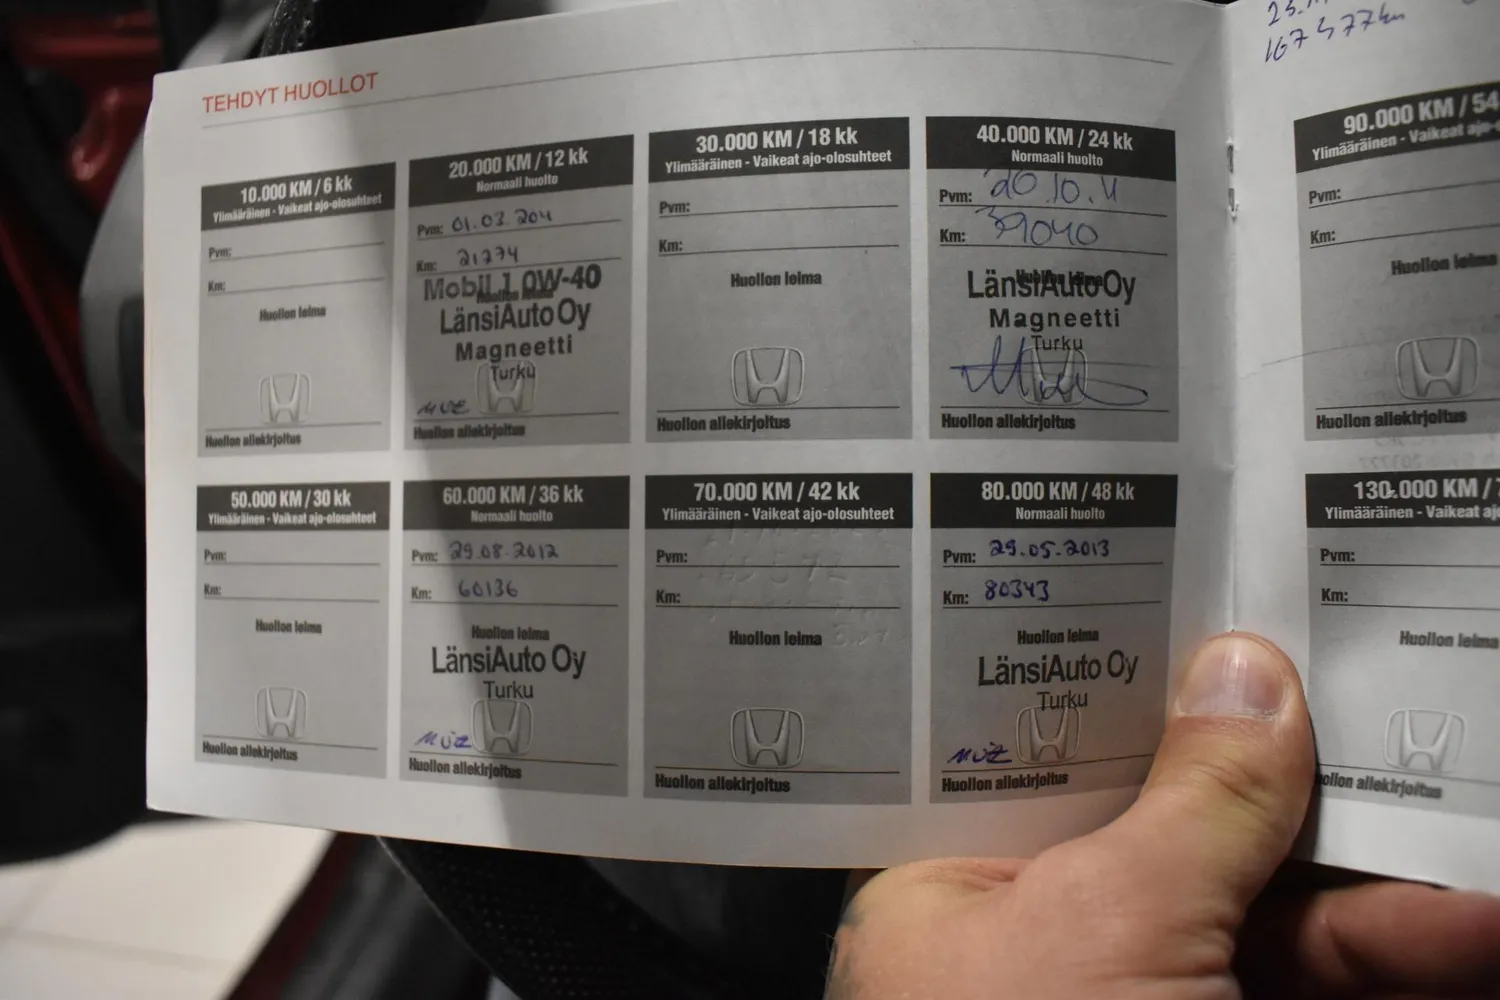 TEHDYT HUOLLOT
10.000 KM / 6 kk
Ylimääräinen - Vaikeat ajo-olosuhteet
Pvm:
Km:
Huollon leima
Huollon allekirjoitus
20.000 KM / 12 kk
Normaali huolto
Pvm: 01.03.2011
Km: 21274
Mobil 1 0W-40
Huollon leima
LänsiAuto Oy
Magneetti
Turku
Huollon allekirjoitus
30.000 KM / 18 kk
Ylimääräinen - Vaikeat ajo-olosuhteet
Pvm:
Km:
Huollon leima
Huollon allekirjoitus
40.000 KM / 24 kk
Normaali huolto
Pvm: 20.10.11
Km: 39040
Huollon leima
LänsiAuto Oy
Magneetti
Turku
Huollon allekirjoitus
50.000 KM / 30 kk
Ylimääräinen - Vaikeat ajo-olosuhteet
Pvm:
Km:
Huollon leima
Huollon allekirjoitus
60.000 KM / 36 kk
Normaali huolto
Pvm: 29.08.2012
Km: 60136
Huollon leima
LänsiAuto Oy
Turku
Huollon allekirjoitus
70.000 KM / 42 kk
Ylimääräinen - Vaikeat ajo-olosuhteet
Pvm:
Km:
Huollon leima
Huollon allekirjoitus
80.000 KM / 48 kk
Normaali huolto
Pvm: 29.05.2013
Km: 80343
Huollon leima
LänsiAuto Oy
Turku
Huollon allekirjoitus
167577km
90.000 KM / 54
Ylimääräinen - Vaikeat ajo-o
Pvm:
Km:
Huollon leima
Huollon allekirjoitus
130.000 KM / 7
Ylimääräinen - Vaikeat ajo
Pvm:
Km:
Huollon leima
uollon allekirjoitus